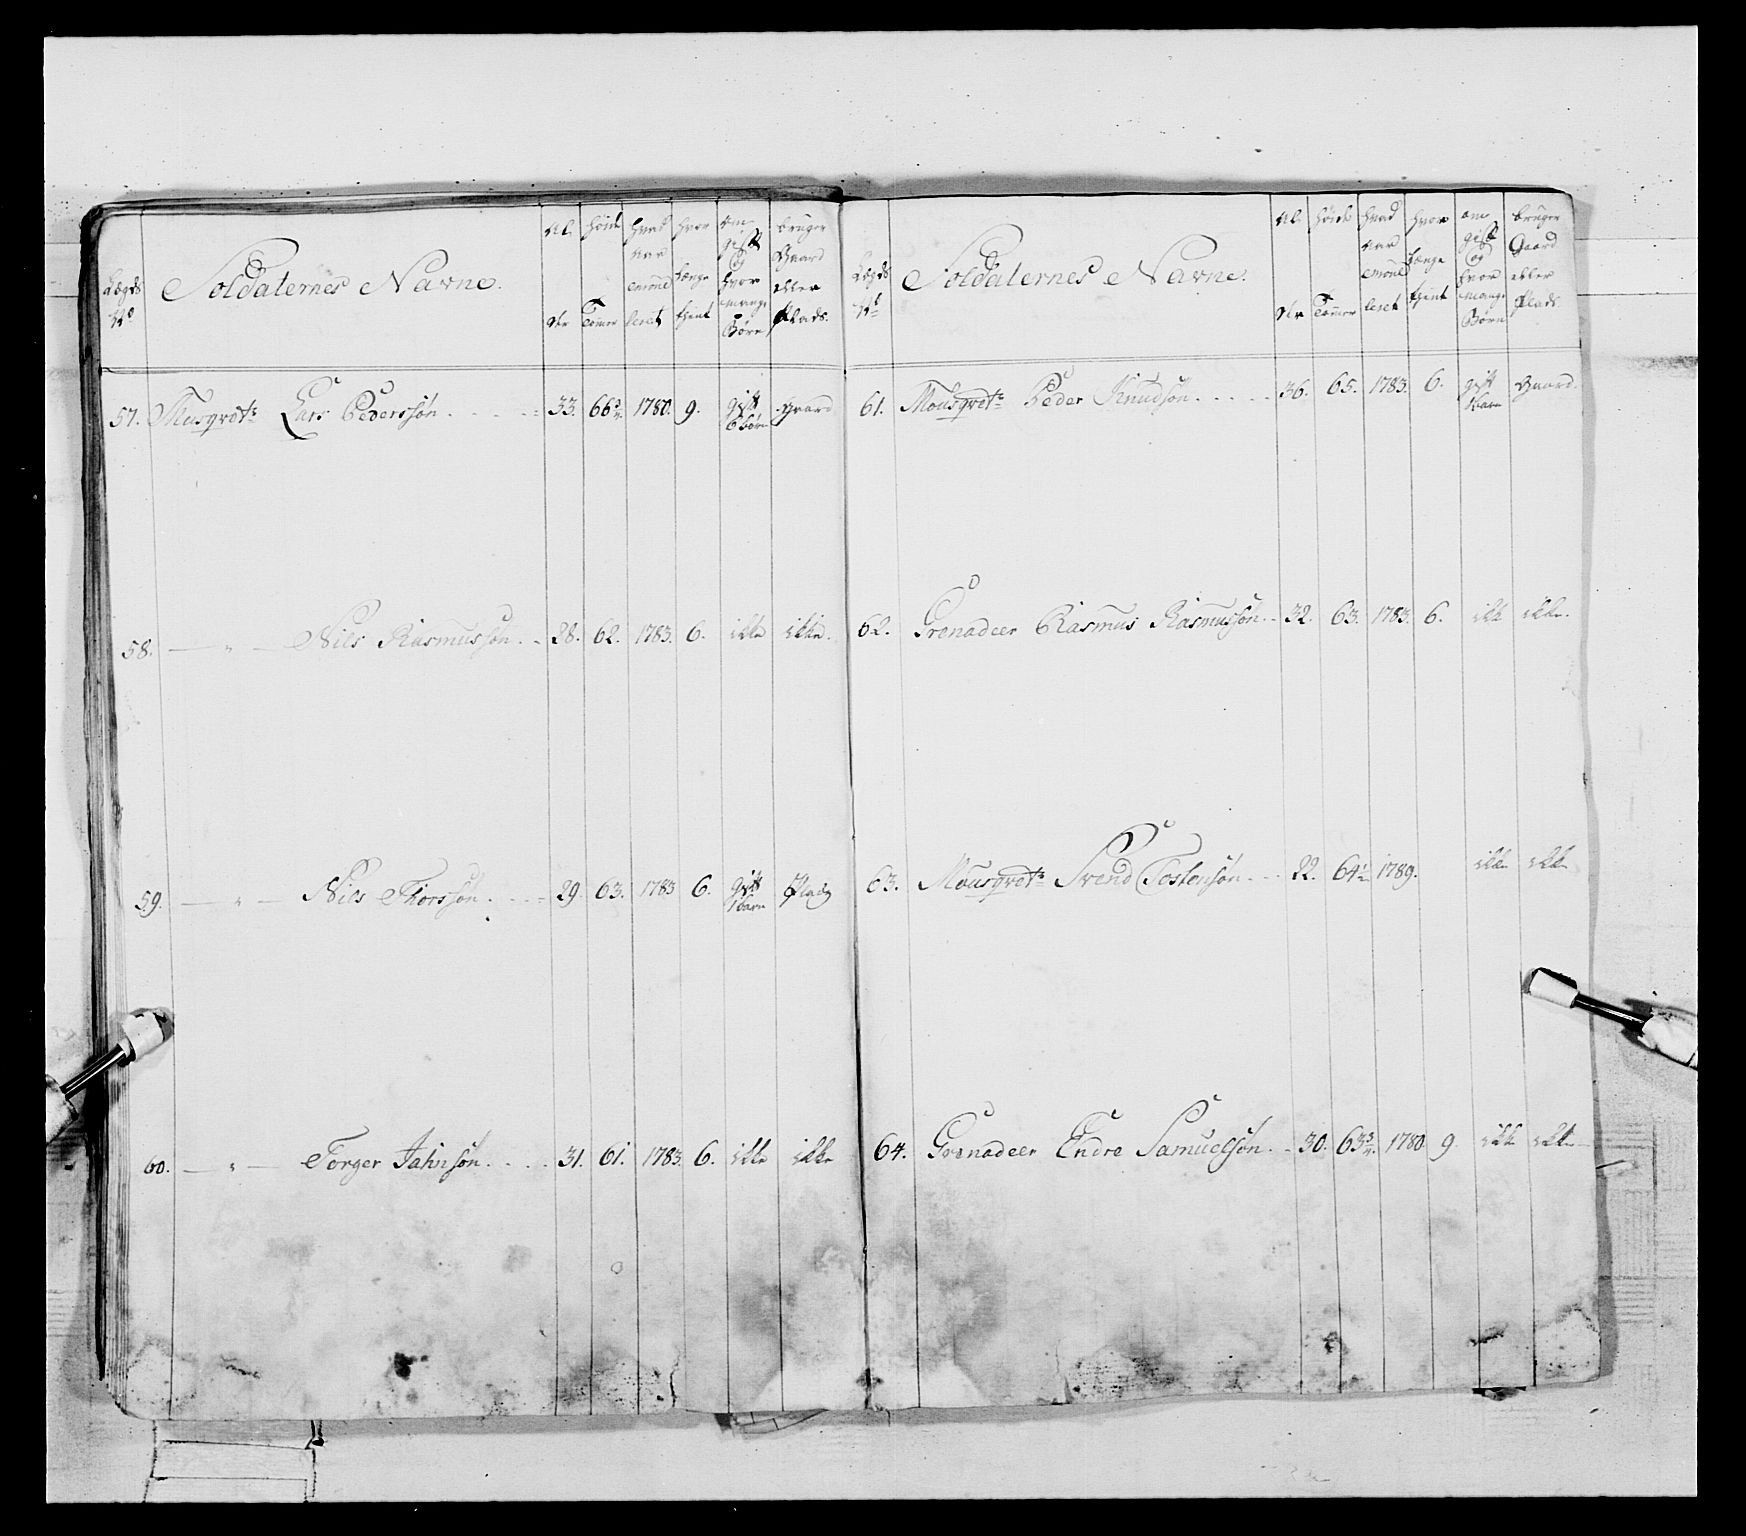 Lægds No
Soldaternes Navne.
Al der
høide Tomer
hvad aar enroulleret
hvor længe thient
om gift og hvor mange Børn
bruger Gaard eller Plads.
57. Musqvetr Lars Pedersøn 33. 66 1780. 9. gift 6 børn gaard
58. — " — Nils Rasmussøn. 28. 62. 1783. 6. ikke ikke.
59. — " — Nils Thorssøn. 29. 63. 1783 6. gift 1 barn Plads
60. — " — Torger Jahnsøn. 31. 61. 1783. 6. ikke ikke
Lægds No
Soldaternes Navne.
Al der
høide Tomer
hvad aar enroulleret
hvor længe thient
om gift og hvor mange Børn
bruger Gaard eller Plads
61. Mousqvetr Peder Knudsøn. 36. 65. 1783. 6. gift 1 barn Gaard.
62. Grenadeer Rasmus Rasmussøn. 32. 63. 1783. 6. ikke ikke.
63. Mousqvetr Svend Tostensøn 22. 64 1/2 1789. ikke ikke
64. Grenadeer Endre Samuelsøn. 30. 63 1780. 9 ikke ikke